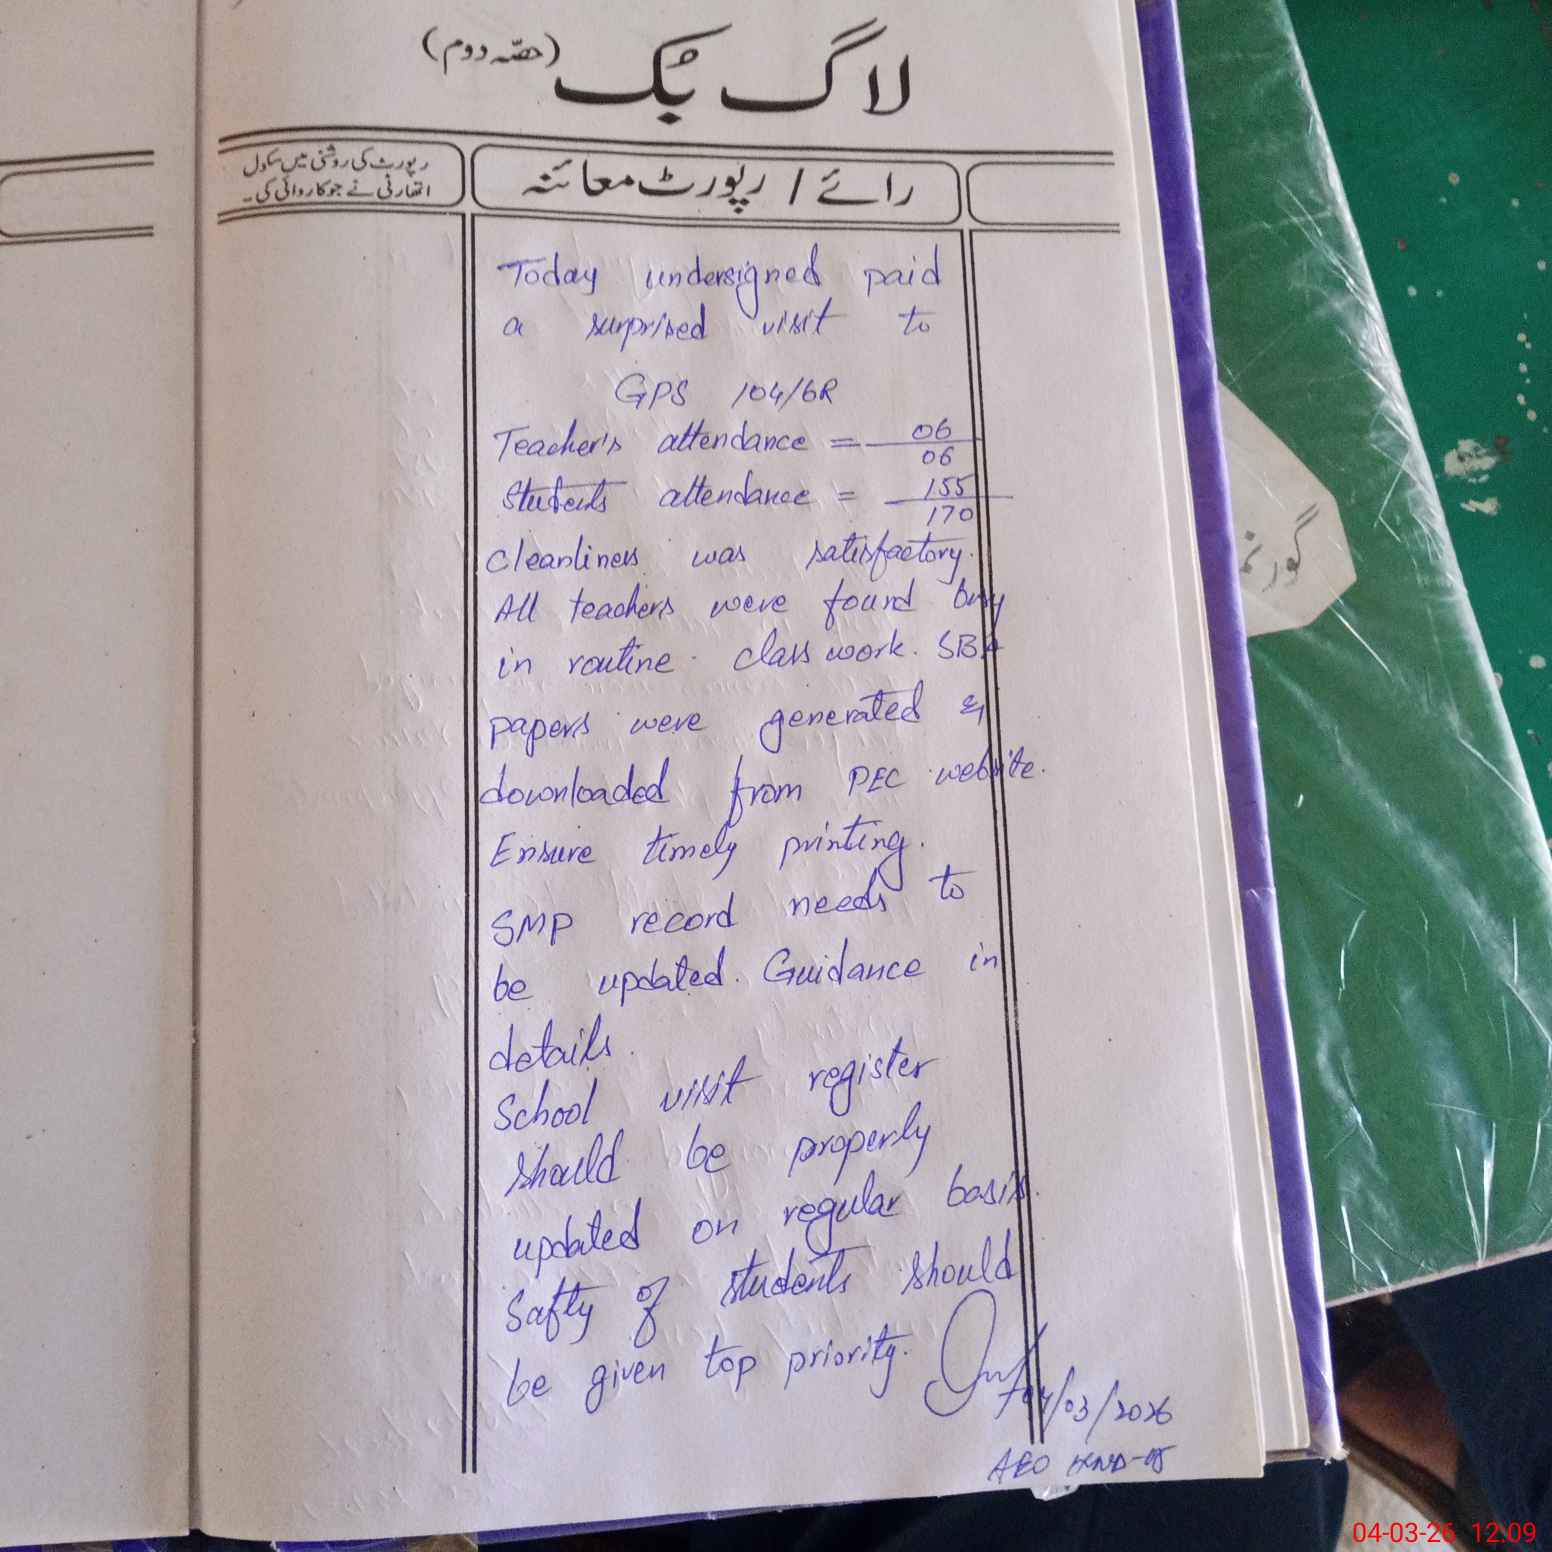 لاگ بُک (حصّہ دوم)
رائے / رپورٹ معائنہ
رپورٹ کی روشنی میں سکول
اتھارٹی نے جو کاروائی کی۔
Today undersigned paid
a surprised visit to
GPS 104/6R
Teacher's attendance = 06
06
Students attendance = 155
170
Cleanliness was satisfactory.
All teachers were found busy
in routine class work. SBA
papers were generated &
downloaded from PEC website.
Ensure timely printing.
SMP record needs to
be updated. Guidance in
details.
School visit register
should be properly
updated on regular basis.
Safty of students should
be given top priority.
04/03/2026
AEO
گورنم
04-03-26 12:09